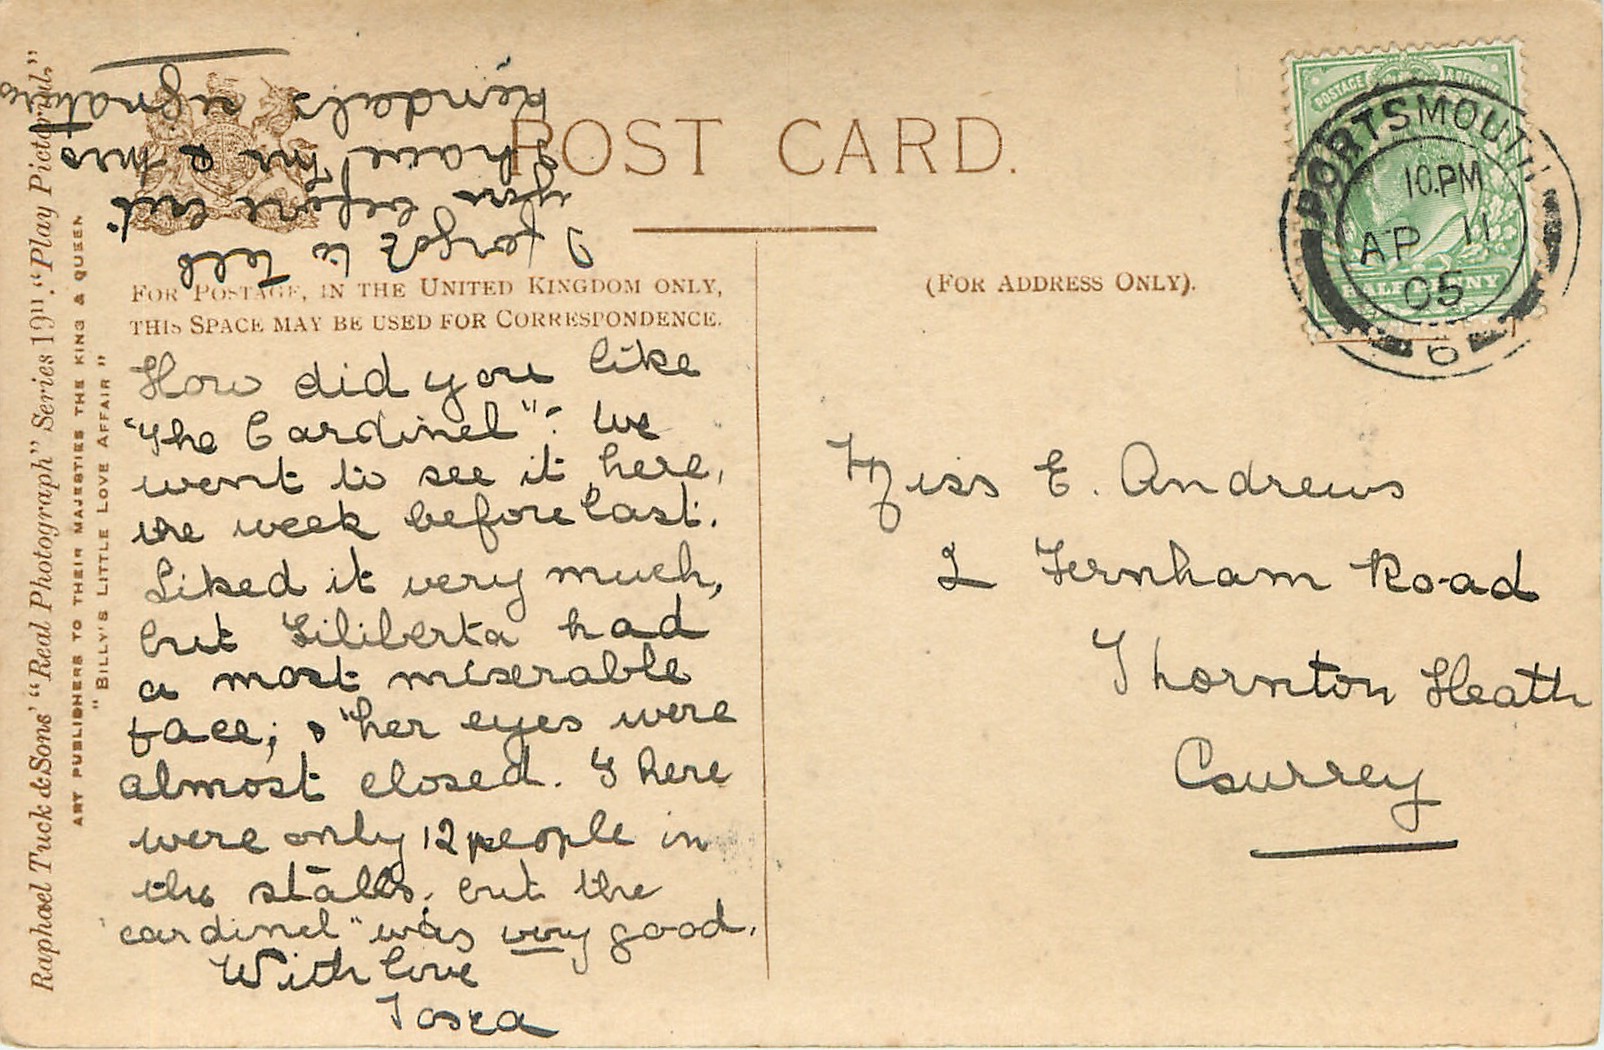 POST CARD.
FOR POSTAGE, IN THE UNITED KINGDOM ONLY,
THIS SPACE MAY BE USED FOR CORRESPONDENCE.
(FOR ADDRESS ONLY).
How did you like
"The Cardinel"? We
went to see it here,
the week before last.
Liked it very much,
but Filiberta had
a most miserable
face; & her eyes were
almost closed. There
were only 12 people in
the stalls, but the
"cardinel" was very good.
With love
Tosca
I forgot to tell
you before but
I have Mr & Mrs
Kendal's signature
Miss E. Andrews
2 Fernham Road
Thornton Heath
Surrey
PORTSMOUTH
10.PM
AP 11
05
6
POSTAGE & REVENUE
HALFPENNY
Raphael Tuck & Sons' "Real Photograph" Series 1911. "Play Pictorial."
ART PUBLISHERS TO THEIR MAJESTIES THE KING & QUEEN
"BILLY'S LITTLE LOVE AFFAIR"